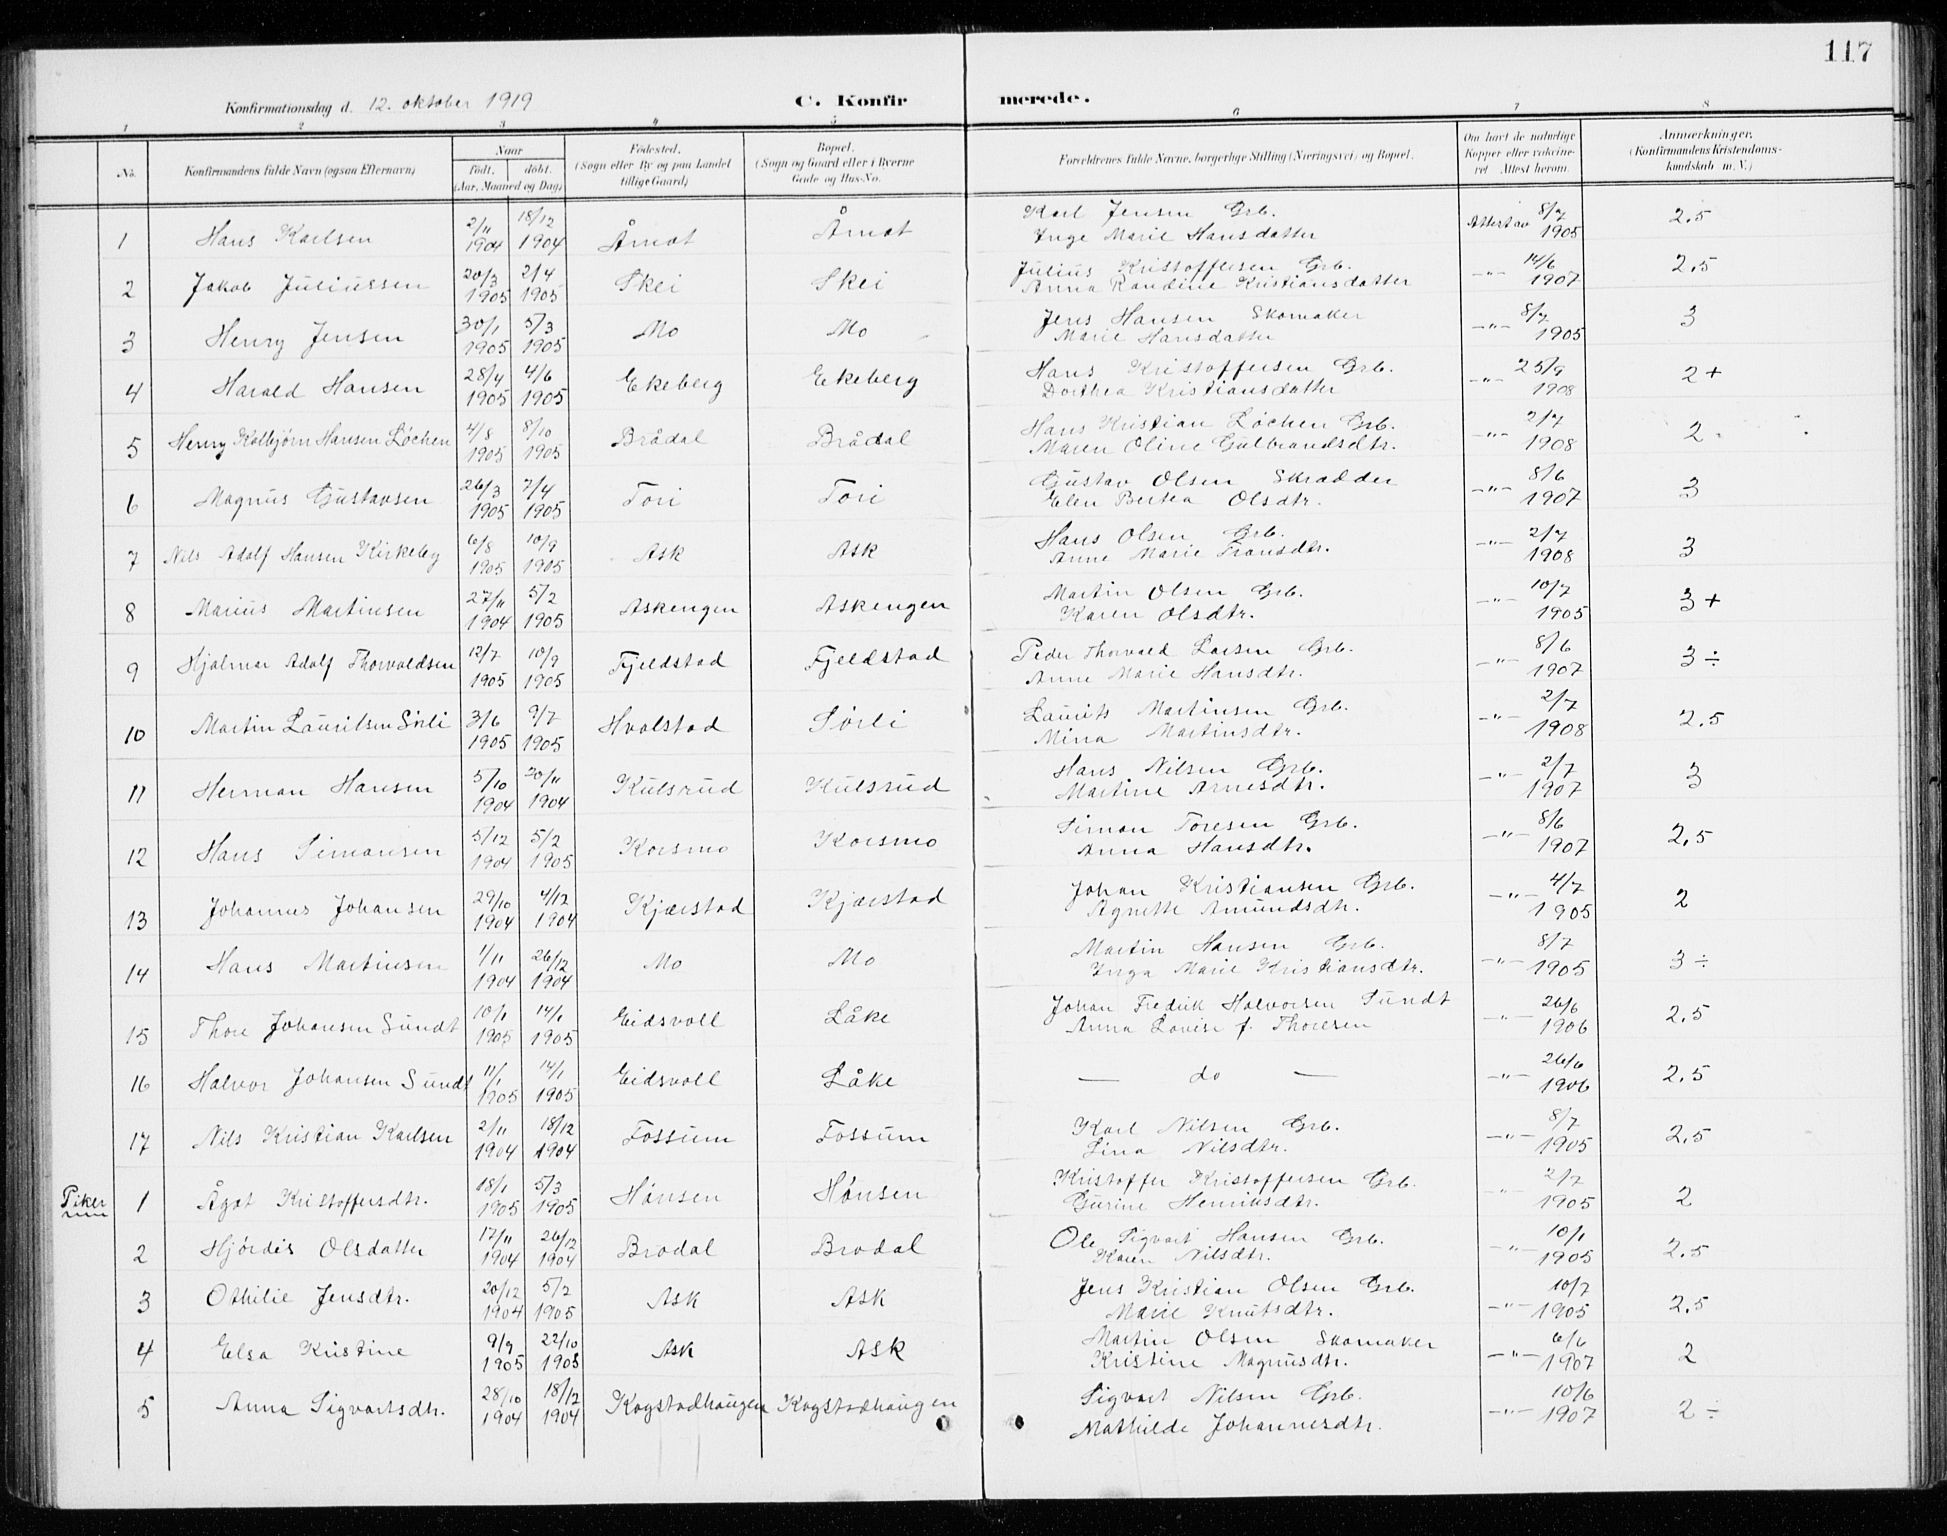 117
Konfirmationsdag d. 12. oktober 1919 C. Konfirmerede.
1 2 3 4 5 6 7 8
No. Konfirmandens fulde Navn (ogsaa Efternavn) Naar født. døbt. (Aar, Maaned og Dag) Fødested. (Sogn eller By og paa Landet tillige Gaard) Bopæl. (Sogn og Gaard eller i Byerne Gade og Hus-No. Forældrenes fulde Navne, borgerlige Stilling (Næringsvei) og Bopæl. Om havt de naturlige Kopper eller vakcineret. Attest herom. Anmærkninger. (Konfirmandens Kristendomskundskab m. V.)
1 Hans Karlsen 2/11 1904 18/12 1904 Årnat Årnat Karl Jensen Grb. Inge Marie Hansdatter Attest av 8/7 1905 2.5
2 Jakob Juliussen 20/3 1905 2/4 1905 Skei Skei Julius Kristoffersen Grb. Anna Randine Kristiansdatter -"- 14/6 1907 2.5
3 Henry Jensen 30/1 1905 5/3 1905 Mo Mo Jens Hansen Skomaker Marie Hansdatter -"- 8/7 1905 3
4 Harald Hansen 28/4 1905 4/6 1905 Ekeberg Ekeberg Hans Kristoffersen Grb. Dorthea Kristiansdatter -"- 25/9 1908 2+
5 Henry Kolbjørn Hansen Løchen 4/8 1905 8/10 1905 Brådal Brådal Hans Kristian Løchen Grb. Maren Oline Gulbrandsdtr. -"- 2/7 1908 2
6 Magnus Gustavsen 26/3 1905 7/4 1905 Tori Tori Gustav Olsen Skrædder Elen Bertea Olsdtr. -"- 8/6 1907 3
7 Nils Adolf Hansen Kirkeby 6/8 1905 10/9 1905 Ask Ask Hans Olsen Grb. Anne Marie Fransdtr. -"- 2/7 1908 3
8 Marius Martinsen 27/11 1904 5/2 1905 Askengen Askengen Martin Olsen Grb. Karen Olsdtr. -"- 10/7 1905 3+
9 Hjalmar Adolf Thorvaldsen 12/7 1905 10/9 1905 Fjeldstad Fjeldstad Peder Thorvald Larsen Grb. Anne Marie Hansdtr. -"- 8/6 1907 3÷
10 Martin Lauritsen Sörli 3/6 1905 9/7 1905 Hvalstad Sörli Laurits Martinsen Grb. Mina Martinsdtr. -"- 2/7 1908 2.5
11 Herman Hansen 5/10 1904 20/11 1904 Kulsrud Kulsrud Hans Nilsen Grb. Martine Arnesdtr. -"- 2/7 1907 3
12 Hans Simansen 5/12 1904 5/2 1905 Korsmo Korsmo Simon Toresen Grb. Anna Hansdtr. -"- 8/6 1907 2.5
13 Johannes Johansen 29/10 1904 4/12 1904 Kjærstad Kjærstad Johan Kristiansen Grb. Agnethe Amundsdtr. -"- 4/7 1905 2
14 Hans Martinsen 1/11 1904 26/12 1904 Mo Mo Martin Hansen Grb. Inga Marie Kristiansdtr. -"- 8/7 1905 3÷
15 Thore Johansen Sundt 10/1 1905 14/1 1905 Eidsvoll Låke Johan Fredrik Halvorsen Sundt Anna Lovise f. Thoresen -"- 26/6 1906 2.5
16 Halvor Johansen Sundt 11/1 1905 14/1 1905 Eidsvoll Låke — do — -"- 26/6 1906 2.5
17 Nils Kristian Karlsen 2/11 1904 18/12 1904 Fossum Fossum Karl Nilsen Grb. Lina Nilsdtr. -"- 8/7 1905 2.5
Piker 1 Ågot Kristoffersdtr. 18/1 1905 5/3 1905 Hönsen Hönsen Kristoffer Kristoffersen Grb. Gurine Henriksdtr. -"- 2/7 1905 2
2 Hjördis Olsdatter 17/11 1904 26/12 1904 Brodal Brodal Ole Sigvart Hansen Grb. Karen Nilsdtr. -"- 10/1 1905 2.5
3 Othilie Jensdtr. 20/12 1904 5/2 1905 Ask Ask Jens Kristian Olsen Grb. Marie Knutsdtr. -"- 10/7 1905 2.5
4 Elsa Kristine 9/9 1905 22/10 1905 Ask Ask Martin Olsen Skomaker Kristine Magnusdtr. -"- 6/6 1907 2
5 Anna Sigvartsdtr. 28/10 1904 18/12 1904 Kogstadhaugen Kogstadhaugen Sigvart Nilsen Grb. Mathilde Johannesdtr. -"- 10/6 1907 2÷